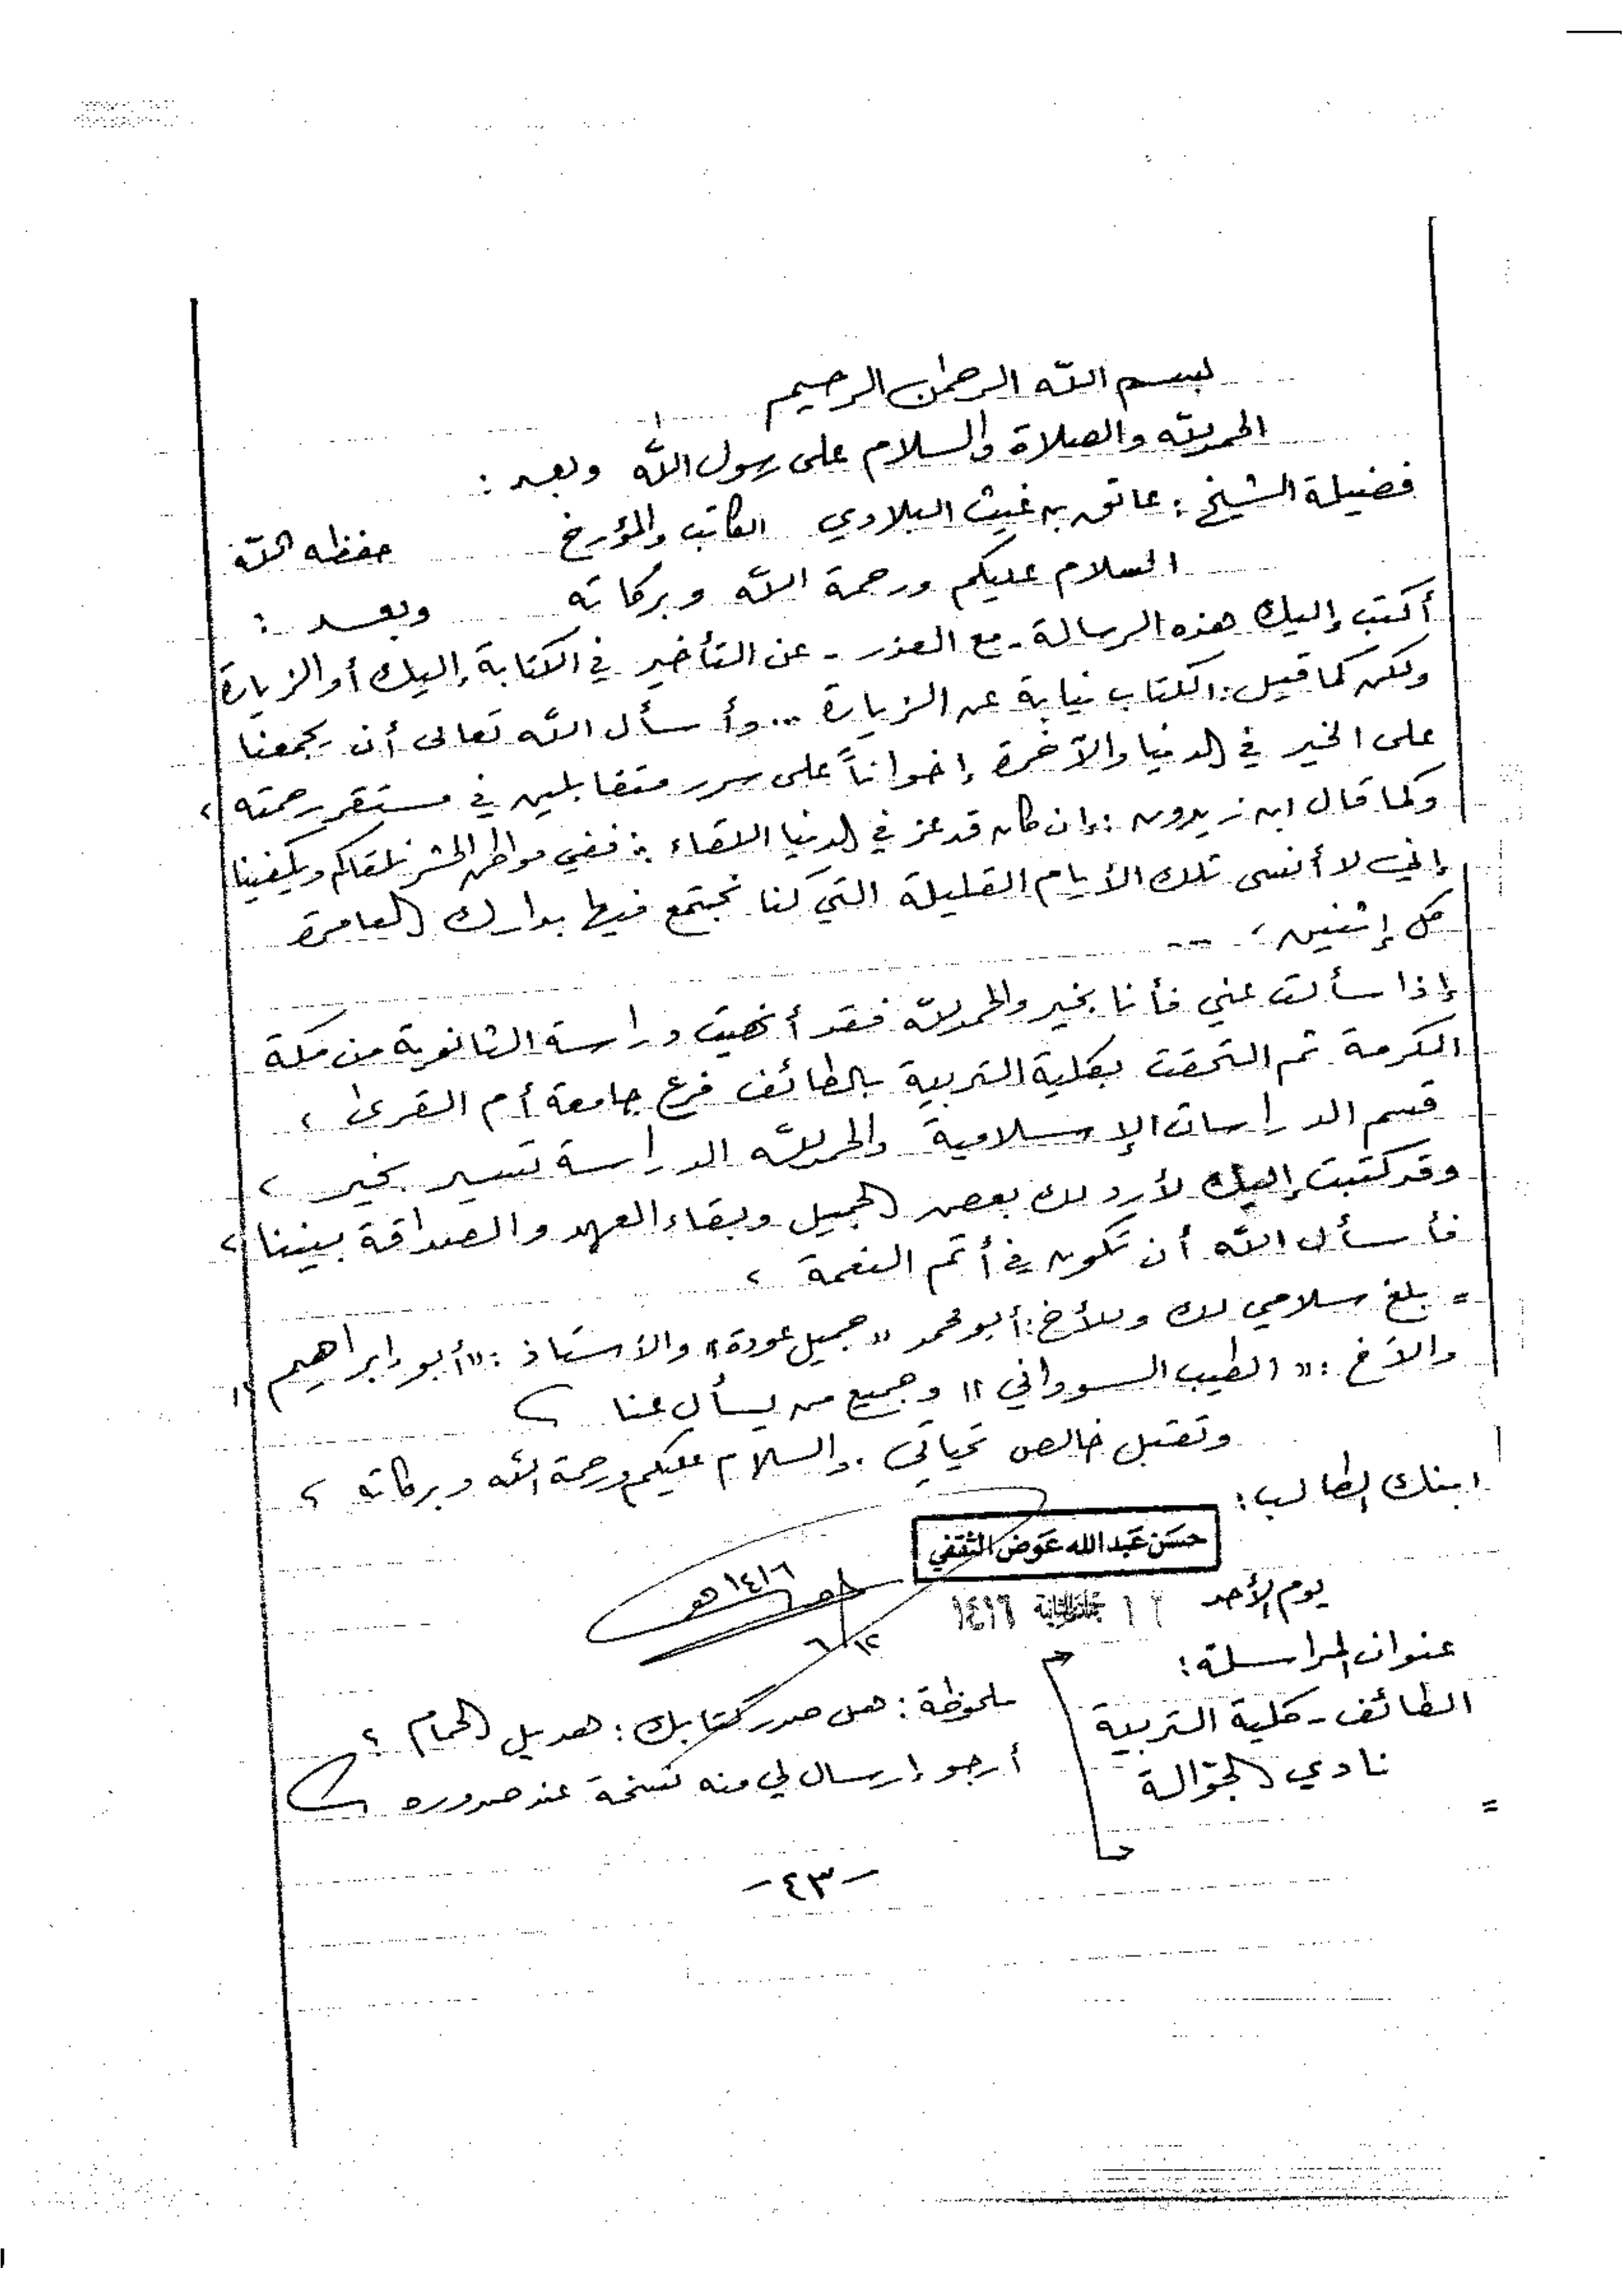 بسم الله الرحمن الرحيم
الحمد لله والصلاة والسلام على رسول الله وبعد :
فضيلة الشيخ : عاتق بن غيث البلادي الكاتب والمؤرخ حفظه الله
السلام عليكم ورحمة الله وبركاته وبعد :
أكتب إليك هذه الرسالة - مع العذر - عن التأخير في الكتابة إليك أو الزيارة
ولكن كما قيل : الكتاب نيابة عن الزيارة ... وأسأل الله تعالى أن يجمعنا
على الخير في الدنيا والآخرة إخواناً على سرر متقابلين في مستقر رحمته ،
وكما قال ابن زيدون : إن كان قد عز في الدنيا اللقاء : ففي مواطن الحشر نلقاكم ويكفينا
إني لا أنسى تلك الأيام القليلة التي كنا نجتمع فيها بدارك العامرة
كل إثنين ، --
إذا سألت عني فأنا بخير والحمد لله فقد أنهيت دراسة الثانوية من مكة
المكرمة ثم التحقت بكلية التربية بالطائف فرع جامعة أم القرى ،
قسم الدراسات الإسلامية والحمد لله الدراسة تسير بخير ،
وقد كتبت إليك لأرد لك بعض الجميل وبقاء العهد والصداقة بيننا ،
فأسأل الله أن تكون في أتم النعمة ،
= بلغ سلامي لك وللأخ : أبو محمد « جميل عودة » والأستاذ : « أبو إبراهيم »
والأخ : « الطيب السوداني » وجميع من يسأل عنا
وتقبل خالص تحياتي . والسلام عليكم ورحمة الله وبركاته ،
ابنك الطالب :
حسَن عَبد الله عَوض الثقفي
يوم الأحد ١٢ جمادى الثانية ١٤١٦
١٤١٦ هـ
٦/١٢
عنوان المراسلة :
الطائف - كلية التربية
نادي الجوّالة
ملحوظة : هل صدر كتابك : هديل الحمام ؟
أرجو إرسال لي منه نسخة عند صدوره
- ٤٣ -